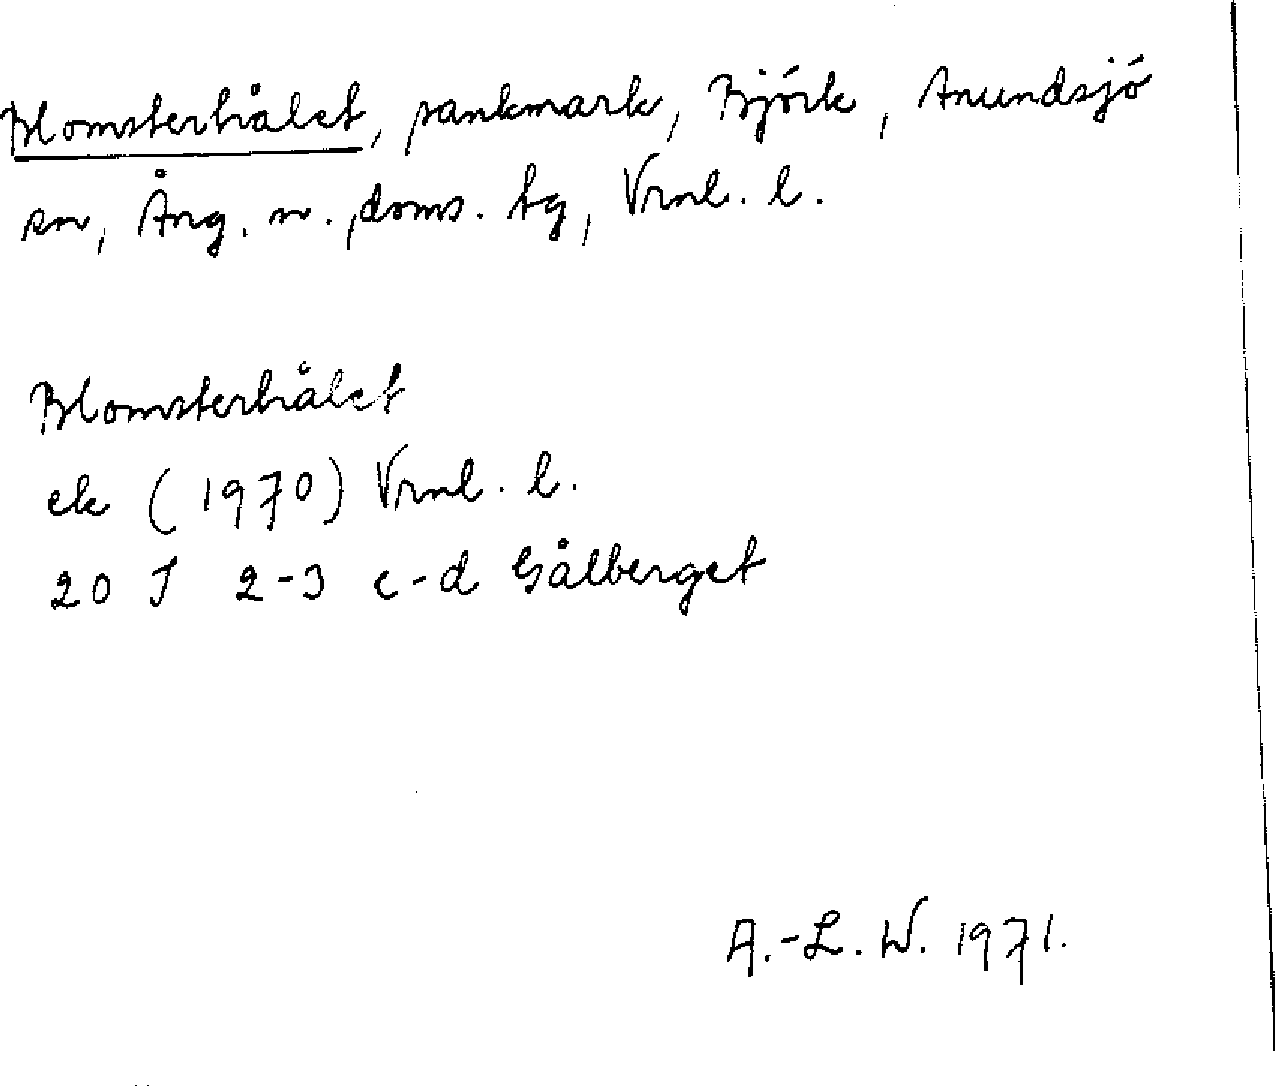 Blomsterhålet, sankmark, Björk, Anundsjö
sn, Ång. n., doms. tg, Vrnl. l.
Blomsterhålet
ek (1970) Vrnl. l.
20 J 2-3 c-d Gålberget
A.-L. W. 1971.